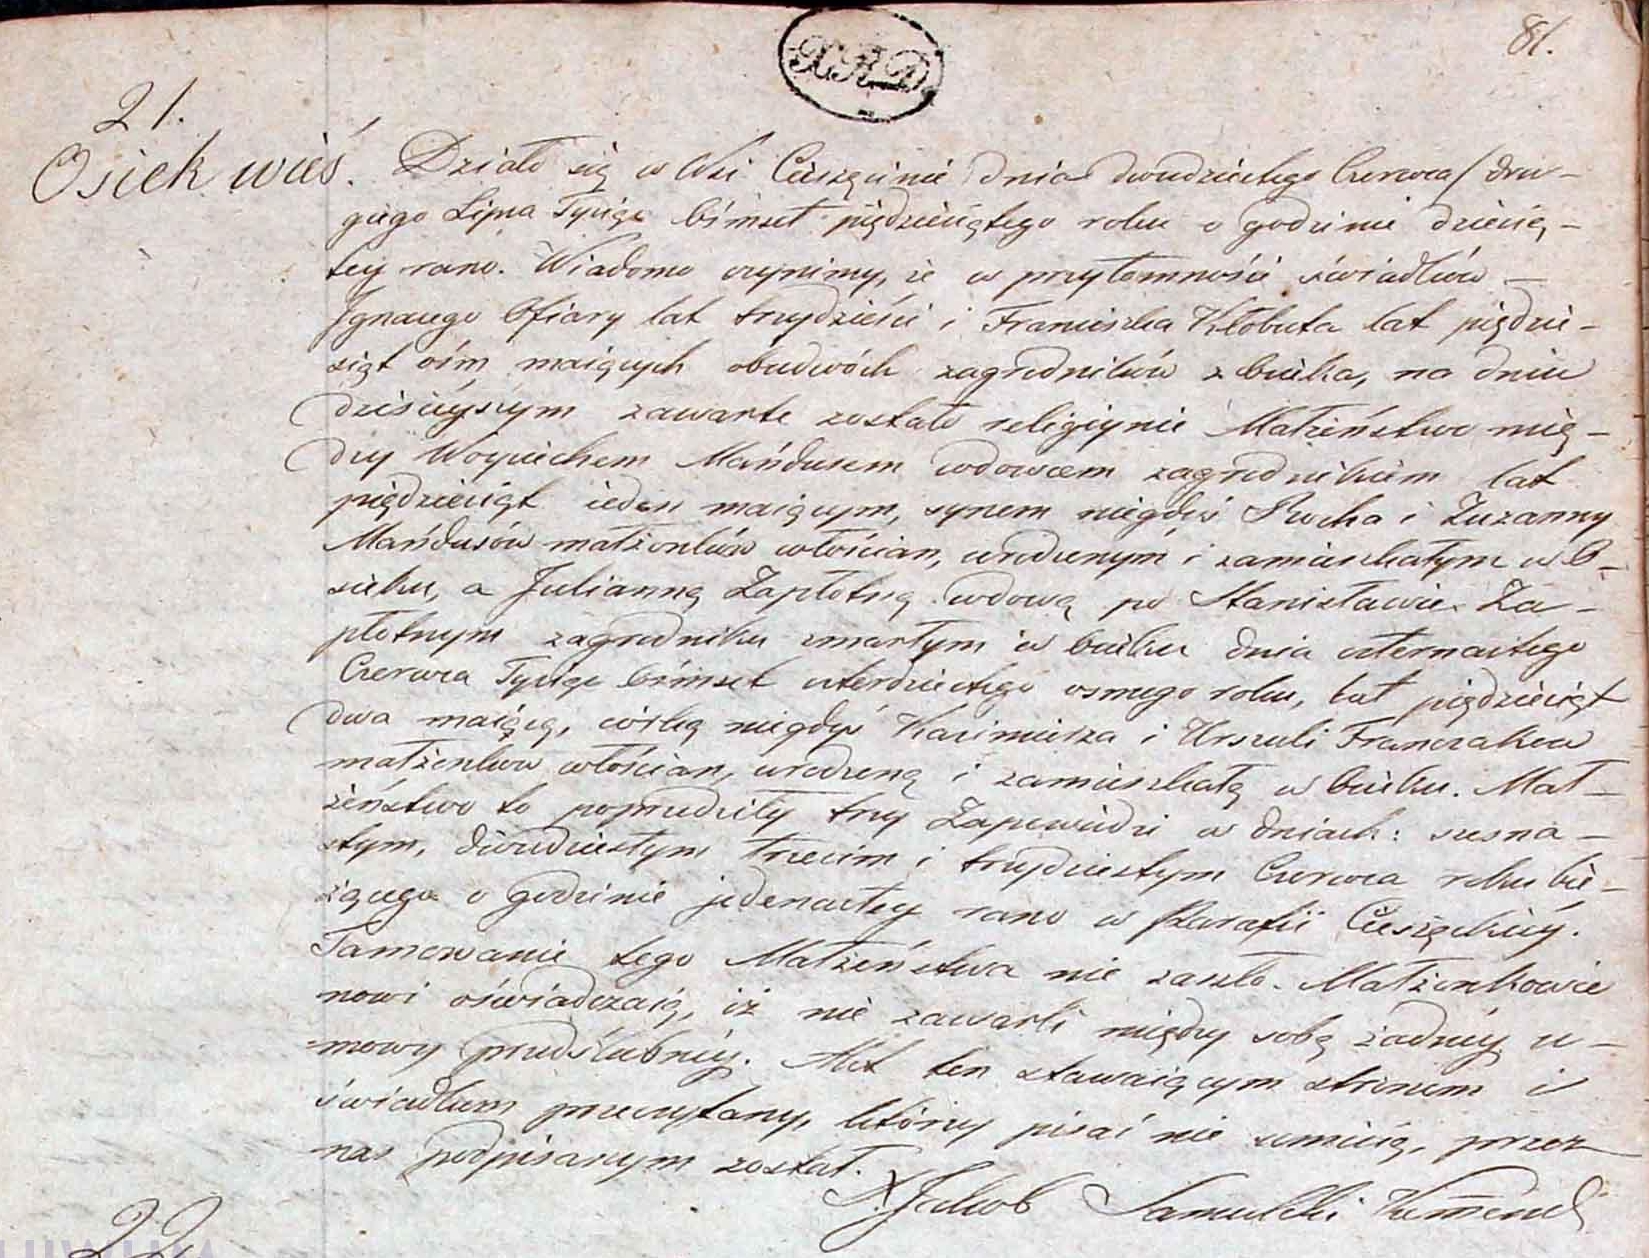 81.
21.
Osiek wieś. Działo się w Wsi Cieszęcinie dnia dwudziestego Czerwca/dru-
giego Lipca Tysiąc ośmset pięćdziesiątego roku o godzinie dziesią-
tey rano. Wiadomo czynimy, że w przytomności świadków
Ignacego Ofiary lat trzydzieści i Franciszka Kłobuta lat pięćdzie-
siąt ośm maiących obudwóch zagrodników z Osieka, na dniu
dzisieyszym zawarte zostało religiynie Małżeństwo mię-
dzy Woyciechem Mańdusem wdowcem zagrodnikiem lat
pięćdziesiąt ieden maiącym, synem niegdyś Rocha i Zuzanny
Mańdusów małżonków włościan, urodzonym i zamieszkałym w O-
sieku, a Julianną Zapłotną wdową po Stanisławie Za-
płotnym zagrodniku zmarłym w Osieku dnia czternastego
Czerwca Tysiąc ośmset czterdziestego osmego roku, lat pięćdziesiąt
dwa maiącą, córką niegdyś Kazimierza i Urszuli Franczaków
małżonków włościan, urodzoną i zamieszkałą w Osieku. Mał-
żeństwo to poprzedziły trzy Zapowiedzi w dniach: szesna-
stym, dwudziestym trzecim i trzydziestym Czerwca roku bie-
żącego o godzinie jedenastey rano w Parafii Cieszęckiéy.
Tamowanie tego Małżeństwa nie zaszło. Małżonkowie
nowi oświadczaią, iż nie zawarli między sobą żadnéy u-
mowy przedślubnéy. Akt ten stawaiącym stronom i
świadkom przeczytany, którzy pisać nie umieią, przez
nas podpisanym został.
X. Jakób Samulski Komend
22